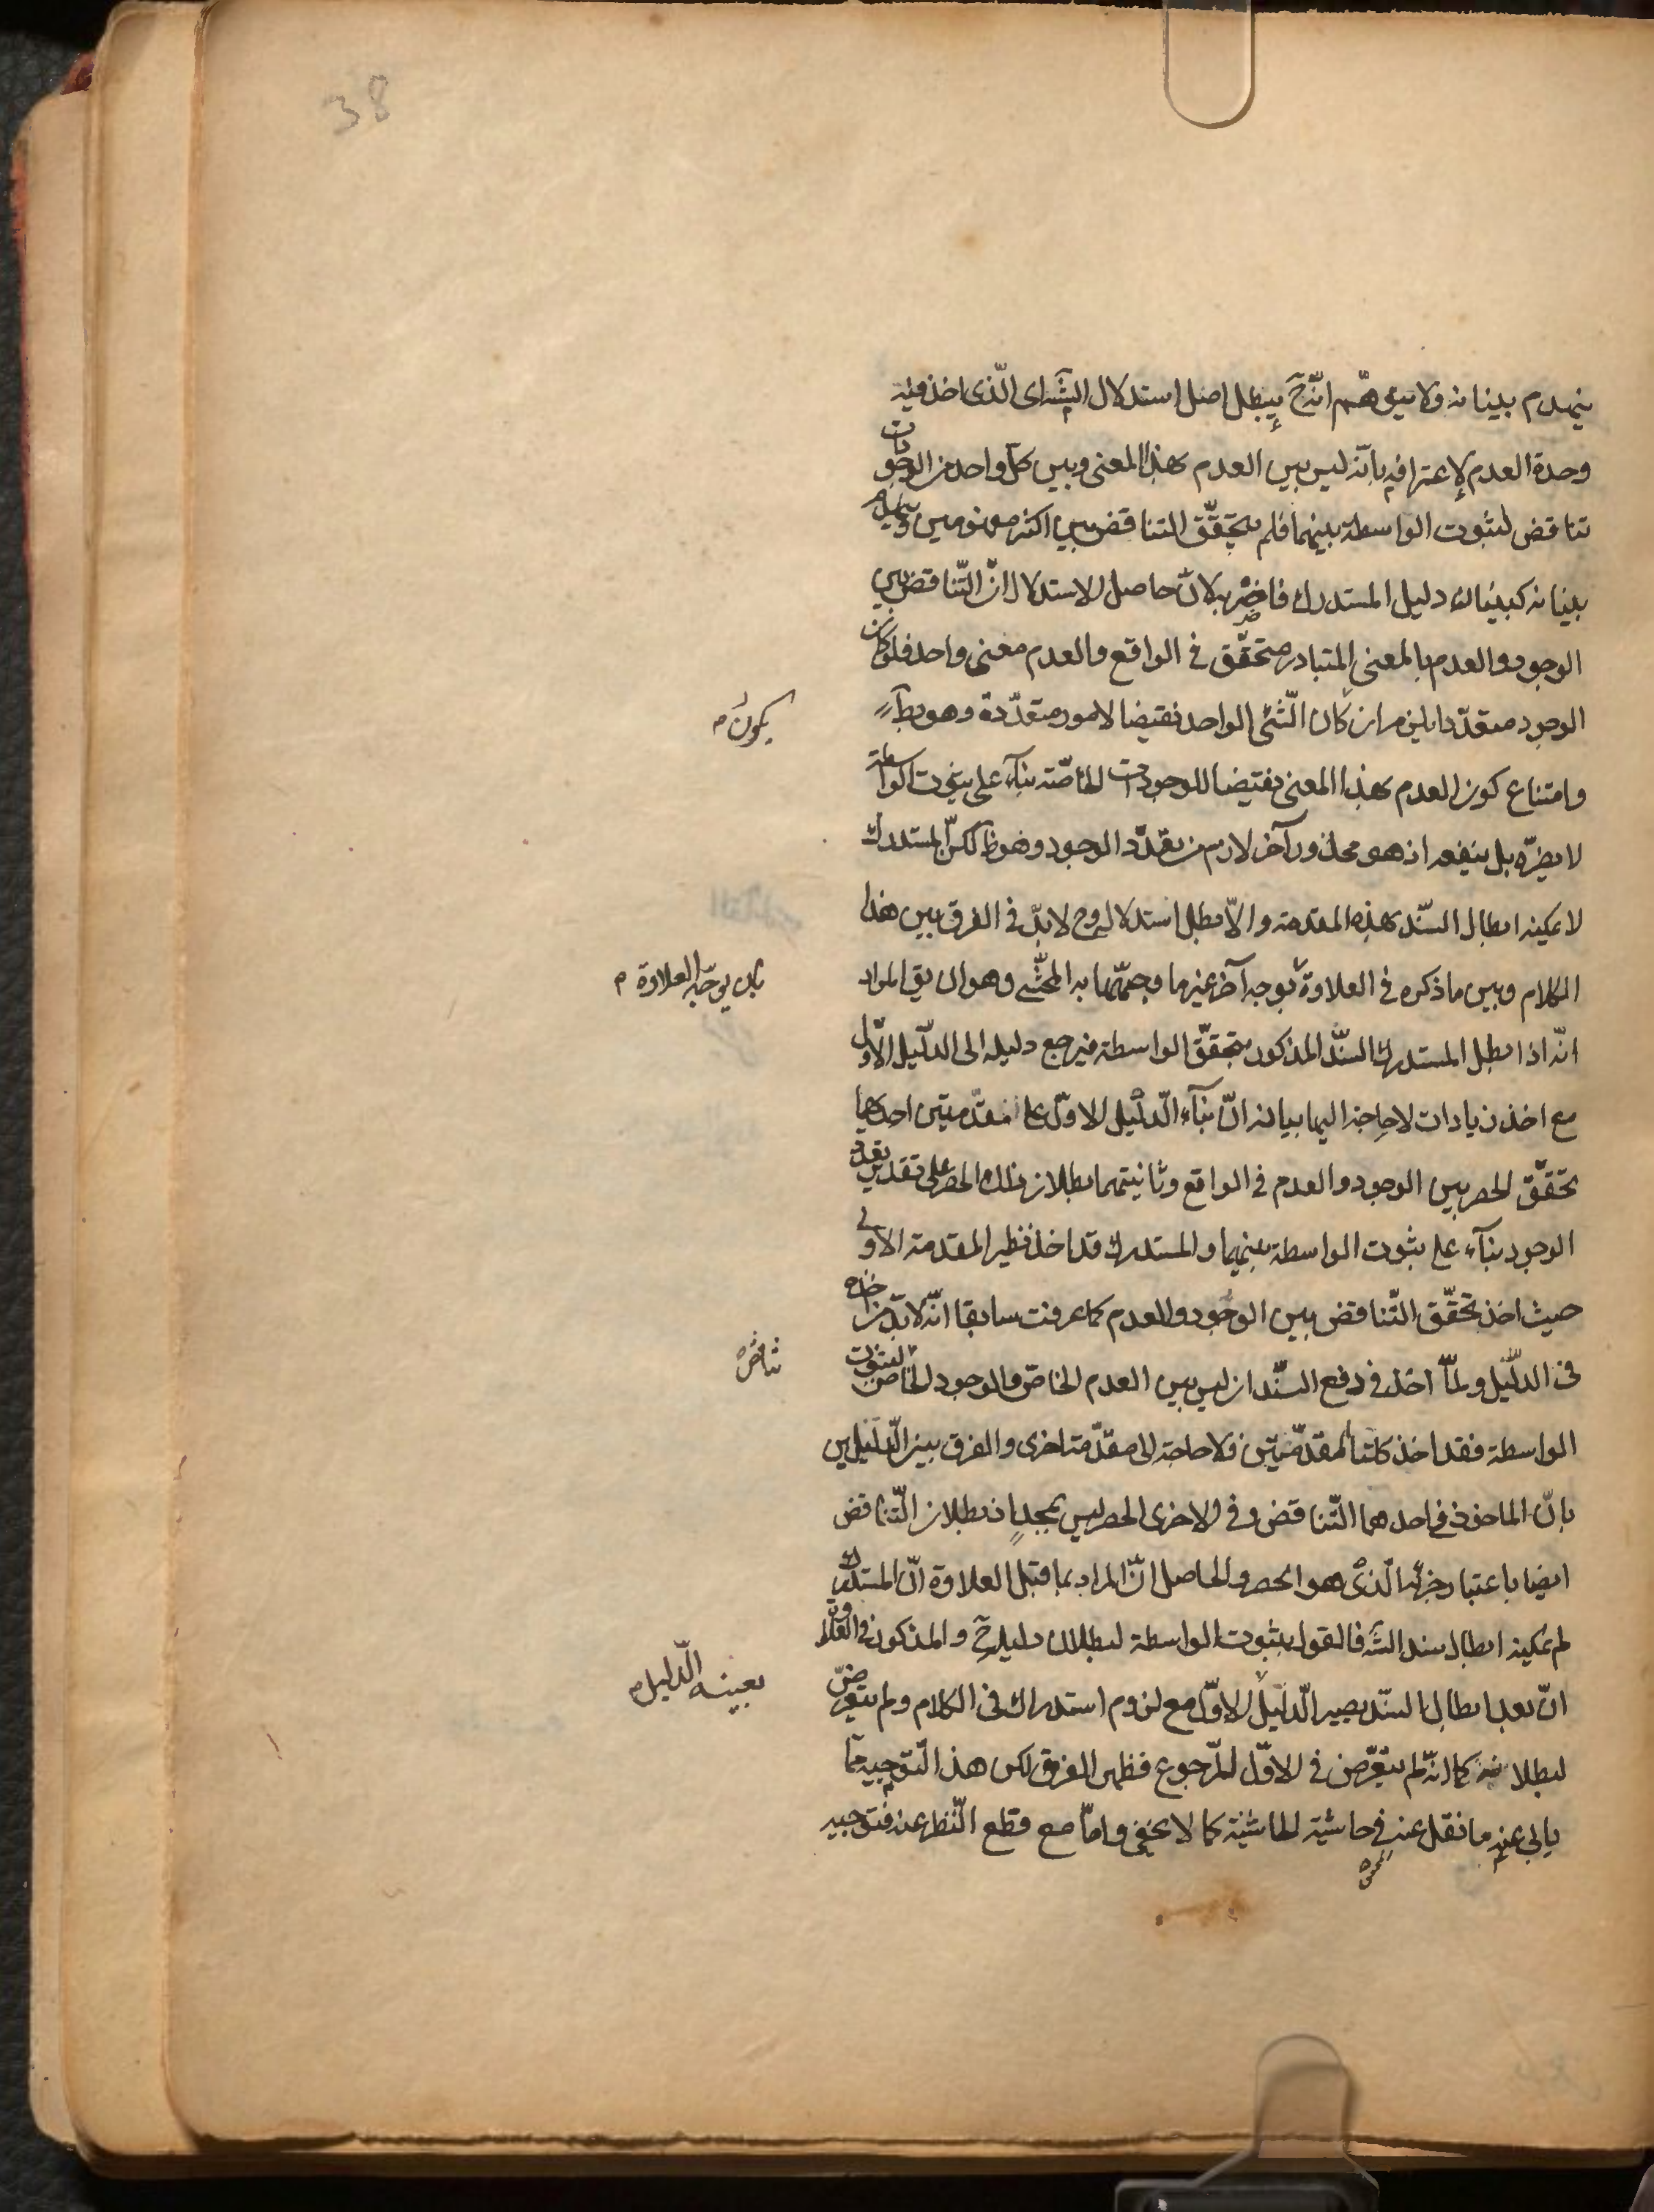 38
ينهدم بنيانه ولا يتوهّم انّه ح يبطل اصل استدلال الشّه اى الّذى اخذ فيه
وحدة العدم لإعترافه بانّه ليس بين العدم بهذا المعنى وبين كلّ واحد من الوجودات
تناقض لثبوت الواسطة بينهما فلم يتحقّق التناقض بين اكثر مفهومين
بنيانه كبنيان دليل المستدرك لانّ حاصل الاستدلال انّ التّناقض بين
الوجود والعدم بالمعنى المتبادر متحقّق فى الواقع والعدم معنى واحد فلو كان
الوجود متعدّدا يلزم ان كان الشّئ الواحد نقيضا لامور متعدّدة وهو بط
يكون م
وامتناع كون العدم بهذا المعنى نقيضا للوجودات الخاصّة بنآء على ثبوت الواسطة
لا يضرّه بل ينفعه اذ هو محذور آخر لازم من تعدّد الوجود وهو ظ لكنّ المستدرك
لا يمكنه ابطال السّند بهذه المقدمة والّا بطل استدلاله وح لابدّ فى الفرق بين هذا
الكلام وبين ما ذكره فى العلاوة بوجه آخر غير ما وجّهها به المحشّى وهو ان يق المراد
بان يوجّه العلاوة م
انّه اذا ابطل المستدرك السّند المذكور بتحقّق الواسطة فيرجع دليله الى الدّليل الاوّل
مع اخذ زيادات لا حاجة اليها بيانه انّ بنآء الّدليل الاوّل على مقدّمتين احدهما
تحقّق الحصر بين الوجود والعدم فى الواقع وثانيتهما بطلان ذلك الحصر على تقدير تعدّد
الوجود بنآء على ثبوت الواسطة بينهما والمستدرك قد اخذ نظير المقدمة الاولى
حيث اخذ تحقّق التّناقض بين الوجود والعدم كما عرفت سابقا انّه لابدّ من اخذه
فى الدّليل ولمّا اخذ فى دفع السّند ان ليس بين العدم الخاصّ والوجود الخاصّ لثبوت
تناقض
الواسطة فقد اخذ كلتا المقدّمتين فلا حاجة الى مقدّمة اخرى والفرق بين الدّليلين
بانّ الماخوذ فى احدهما التّناقض وفى الاخرى الحصر ليس بمجدٍ اذ بطلان التّناقض
ايضا باعتبار جزئه الّذى هو الحصر والحاصل انّ المراد بما قبل العلاوة انّ المستدرك
لم يمكنه ابطال سند الشّه فالقول بثبوت الواسطة لبطلان دليله ح والمذكور فى العلاوة
انّ بعد ابطال السّند يصير الّدليل الاوّل مع لزوم استدراك فى الكلام ولم يتعرّض
بعينه الّدليل م
لبطلانه كما انّه لم يتعرّض فى الاوّل للرّجوع فظهر الفرق لكن هذا التّوجيه ممّا
يابى عنه ما نقل عنه فى حاشية الحاشية كما لا يخفى وامّا مع قطع النّظر عنه فتوجيه